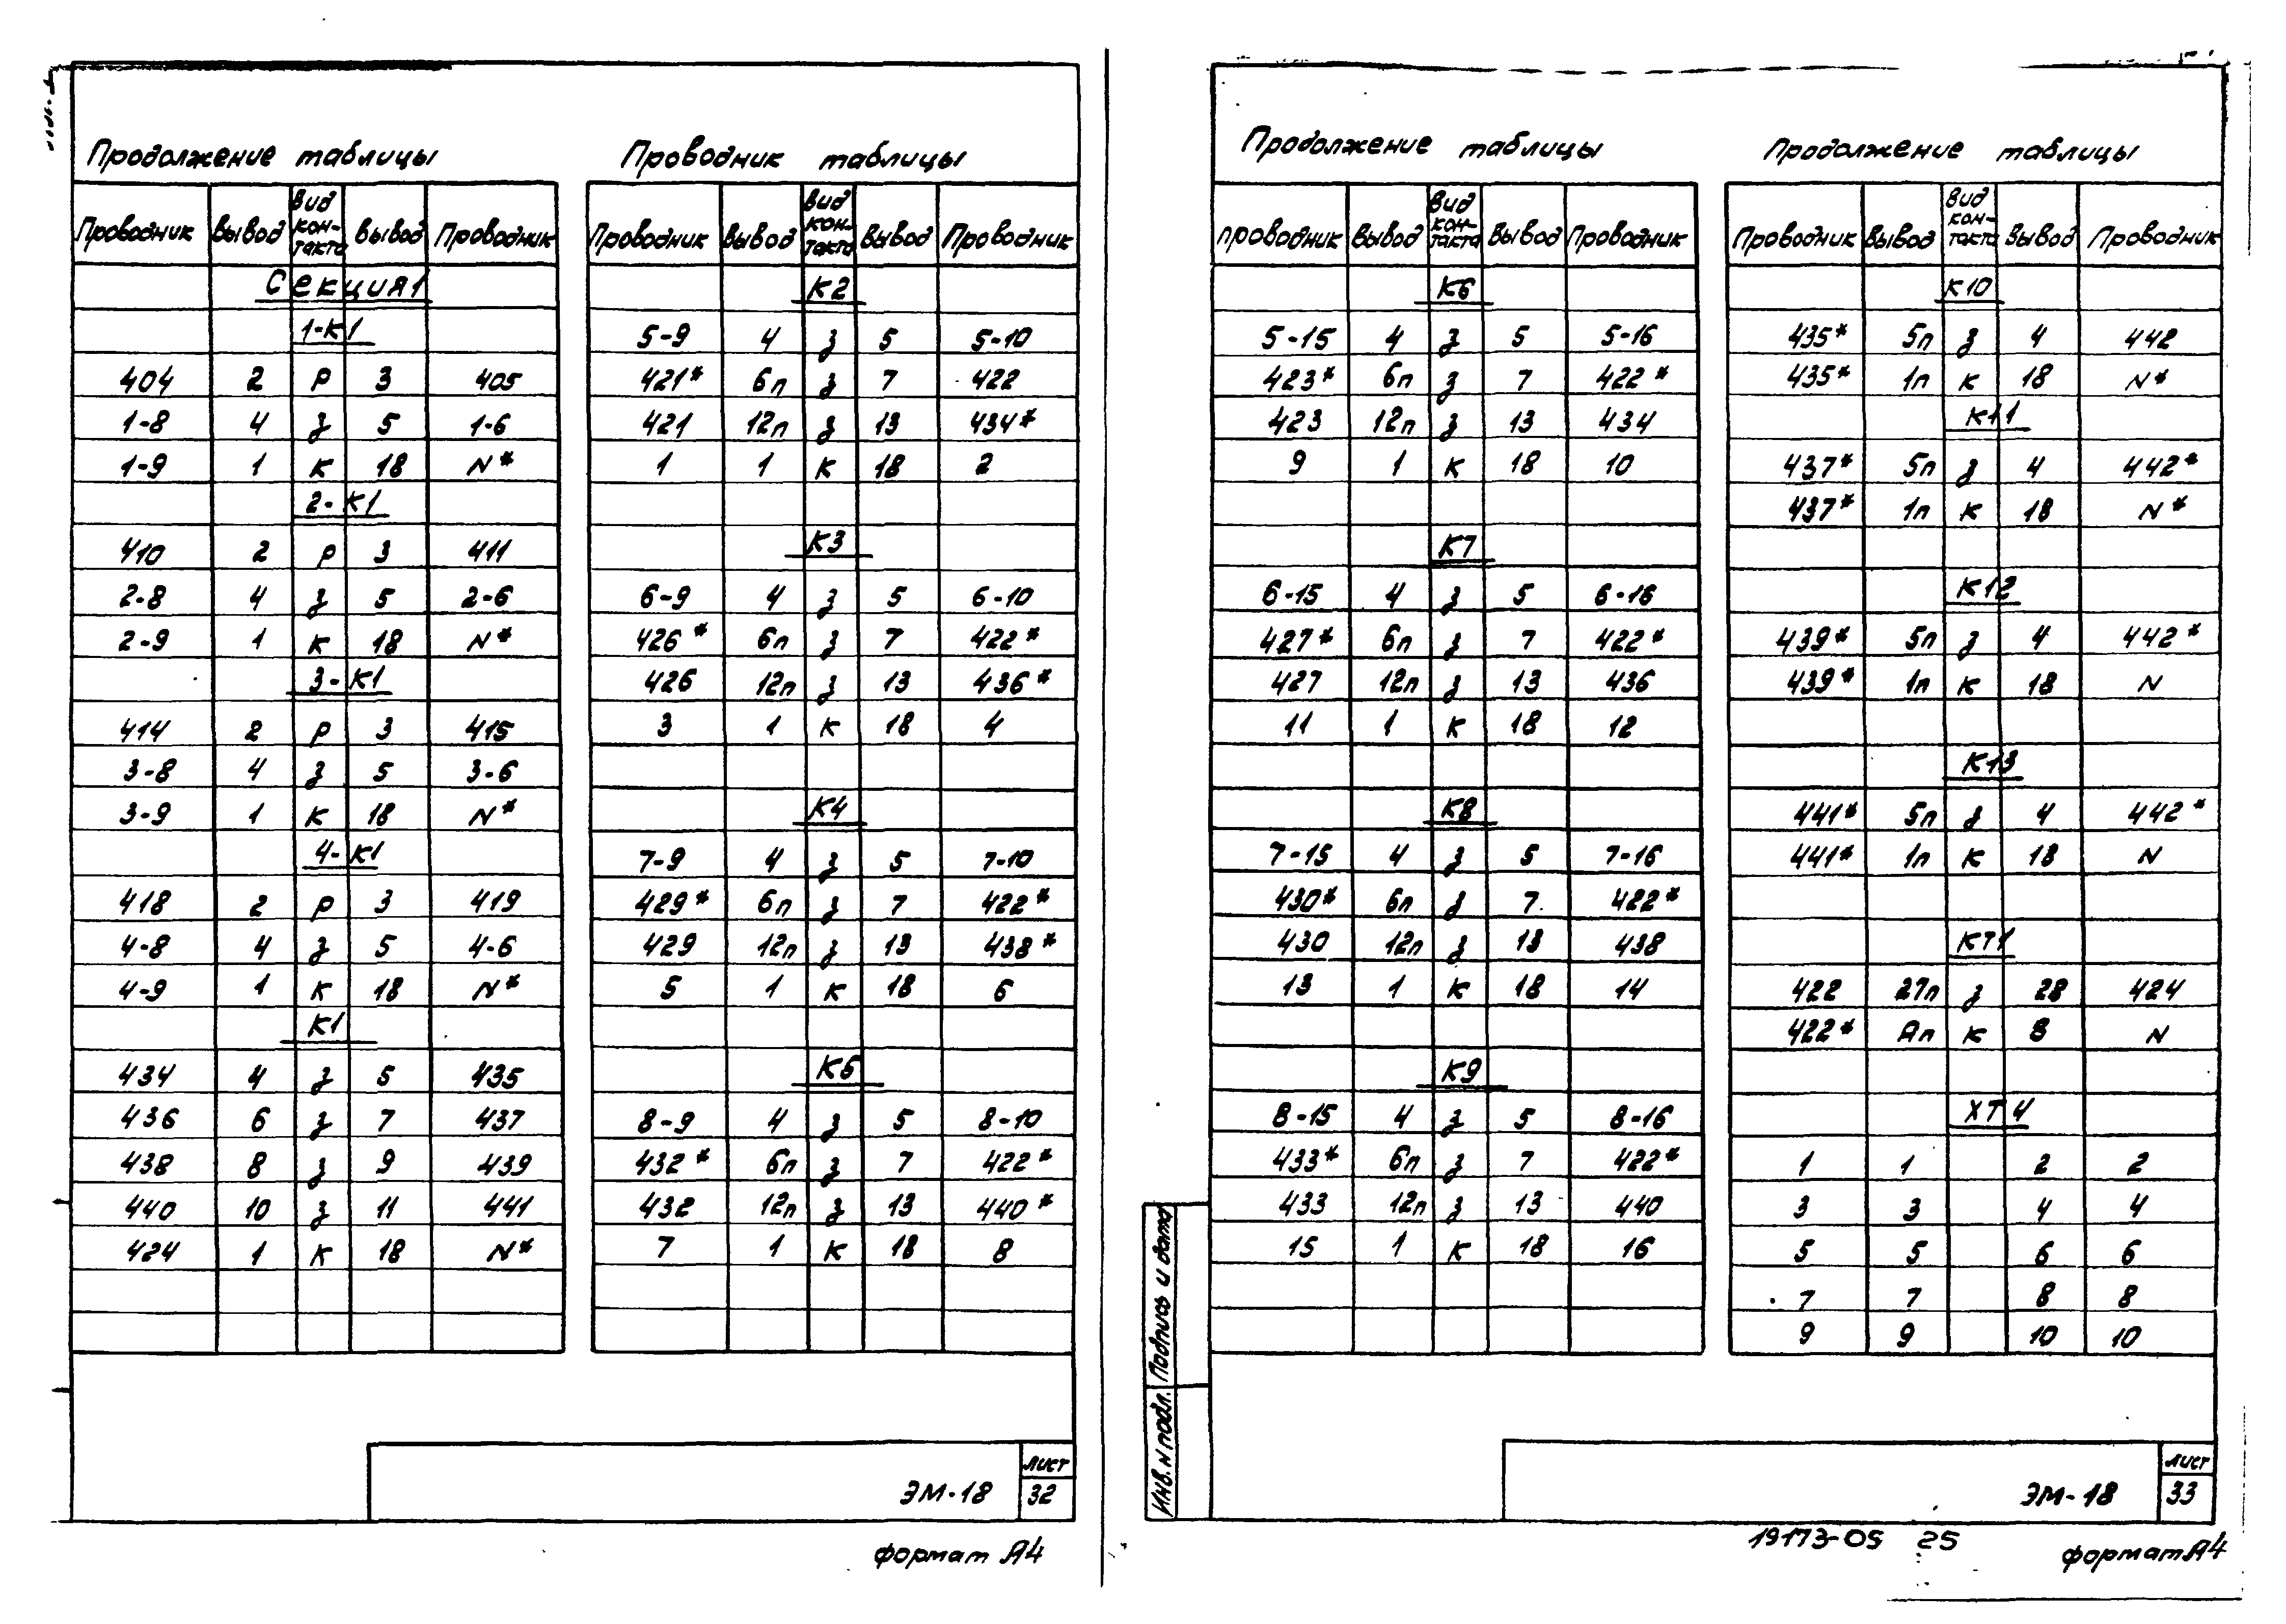 Продолжение таблицы
Проводник Вывод Вид кон-такта Вывод Проводник
Секция1
1-К1
404 2 р 3 405
1-8 4 з 5 1-6
1-9 1 к 18 N*
2-К1
410 2 р 3 411
2-8 4 з 5 2-6
2-9 1 к 18 N*
3-К1
414 2 р 3 415
3-8 4 з 5 3-6
3-9 1 к 18 N*
4-К1
418 2 р 3 419
4-8 4 з 5 4-6
4-9 1 к 18 N*
К1
434 4 з 5 435
436 6 з 7 437
438 8 з 9 439
440 10 з 11 441
424 1 к 18 N*
Проводник таблицы
Проводник Вывод Вид кон-такта Вывод Проводник
К2
5-9 4 з 5 5-10
421* 6п з 7 422
421 12п з 13 434*
1 1 к 18 2
К3
6-9 4 з 5 6-10
426* 6п з 7 422*
426 12п з 13 436*
3 1 к 18 4
К4
7-9 4 з 5 7-10
429* 6п з 7 422*
429 12п з 13 438*
5 1 к 18 6
К5
8-9 4 з 5 8-10
432* 6п з 7 422*
432 12п з 13 440*
7 1 к 18 8
ЭМ-18
лист
32
формат А4
Продолжение таблицы
проводник Вывод Вид кон-такта Вывод Проводник
К6
5-15 4 з 5 5-16
423* 6п з 7 422*
423 12п з 13 434
9 1 к 18 10
К7
6-15 4 з 5 6-16
427* 6п з 7 422*
427 12п з 13 436
11 1 к 18 12
К8
7-15 4 з 5 7-16
430* 6п з 7 422*
430 12п з 13 438
13 1 к 18 14
К9
8-15 4 з 5 8-16
433* 6п з 7 422*
433 12п з 13 440
15 1 к 18 16
Продолжение таблицы
Проводник Вывод Вид кон-такта Вывод Проводник
К10
435* 5п з 4 442
435* 1п к 18 N*
К11
437* 5п з 4 442*
437* 1п к 18 N*
К12
439* 5п з 4 442*
439* 1п к 18 N
К13
441* 5п з 4 442*
441* 1п к 18 N
КТ1
422 27п з 28 424
422* Ап к В N
ХТ4
1 1 2 2
3 3 4 4
5 5 6 6
7 7 8 8
9 9 10 10
Инв. N подл. Подпись и дата
ЭМ-18
лист
33
19173-05 25
формат А4